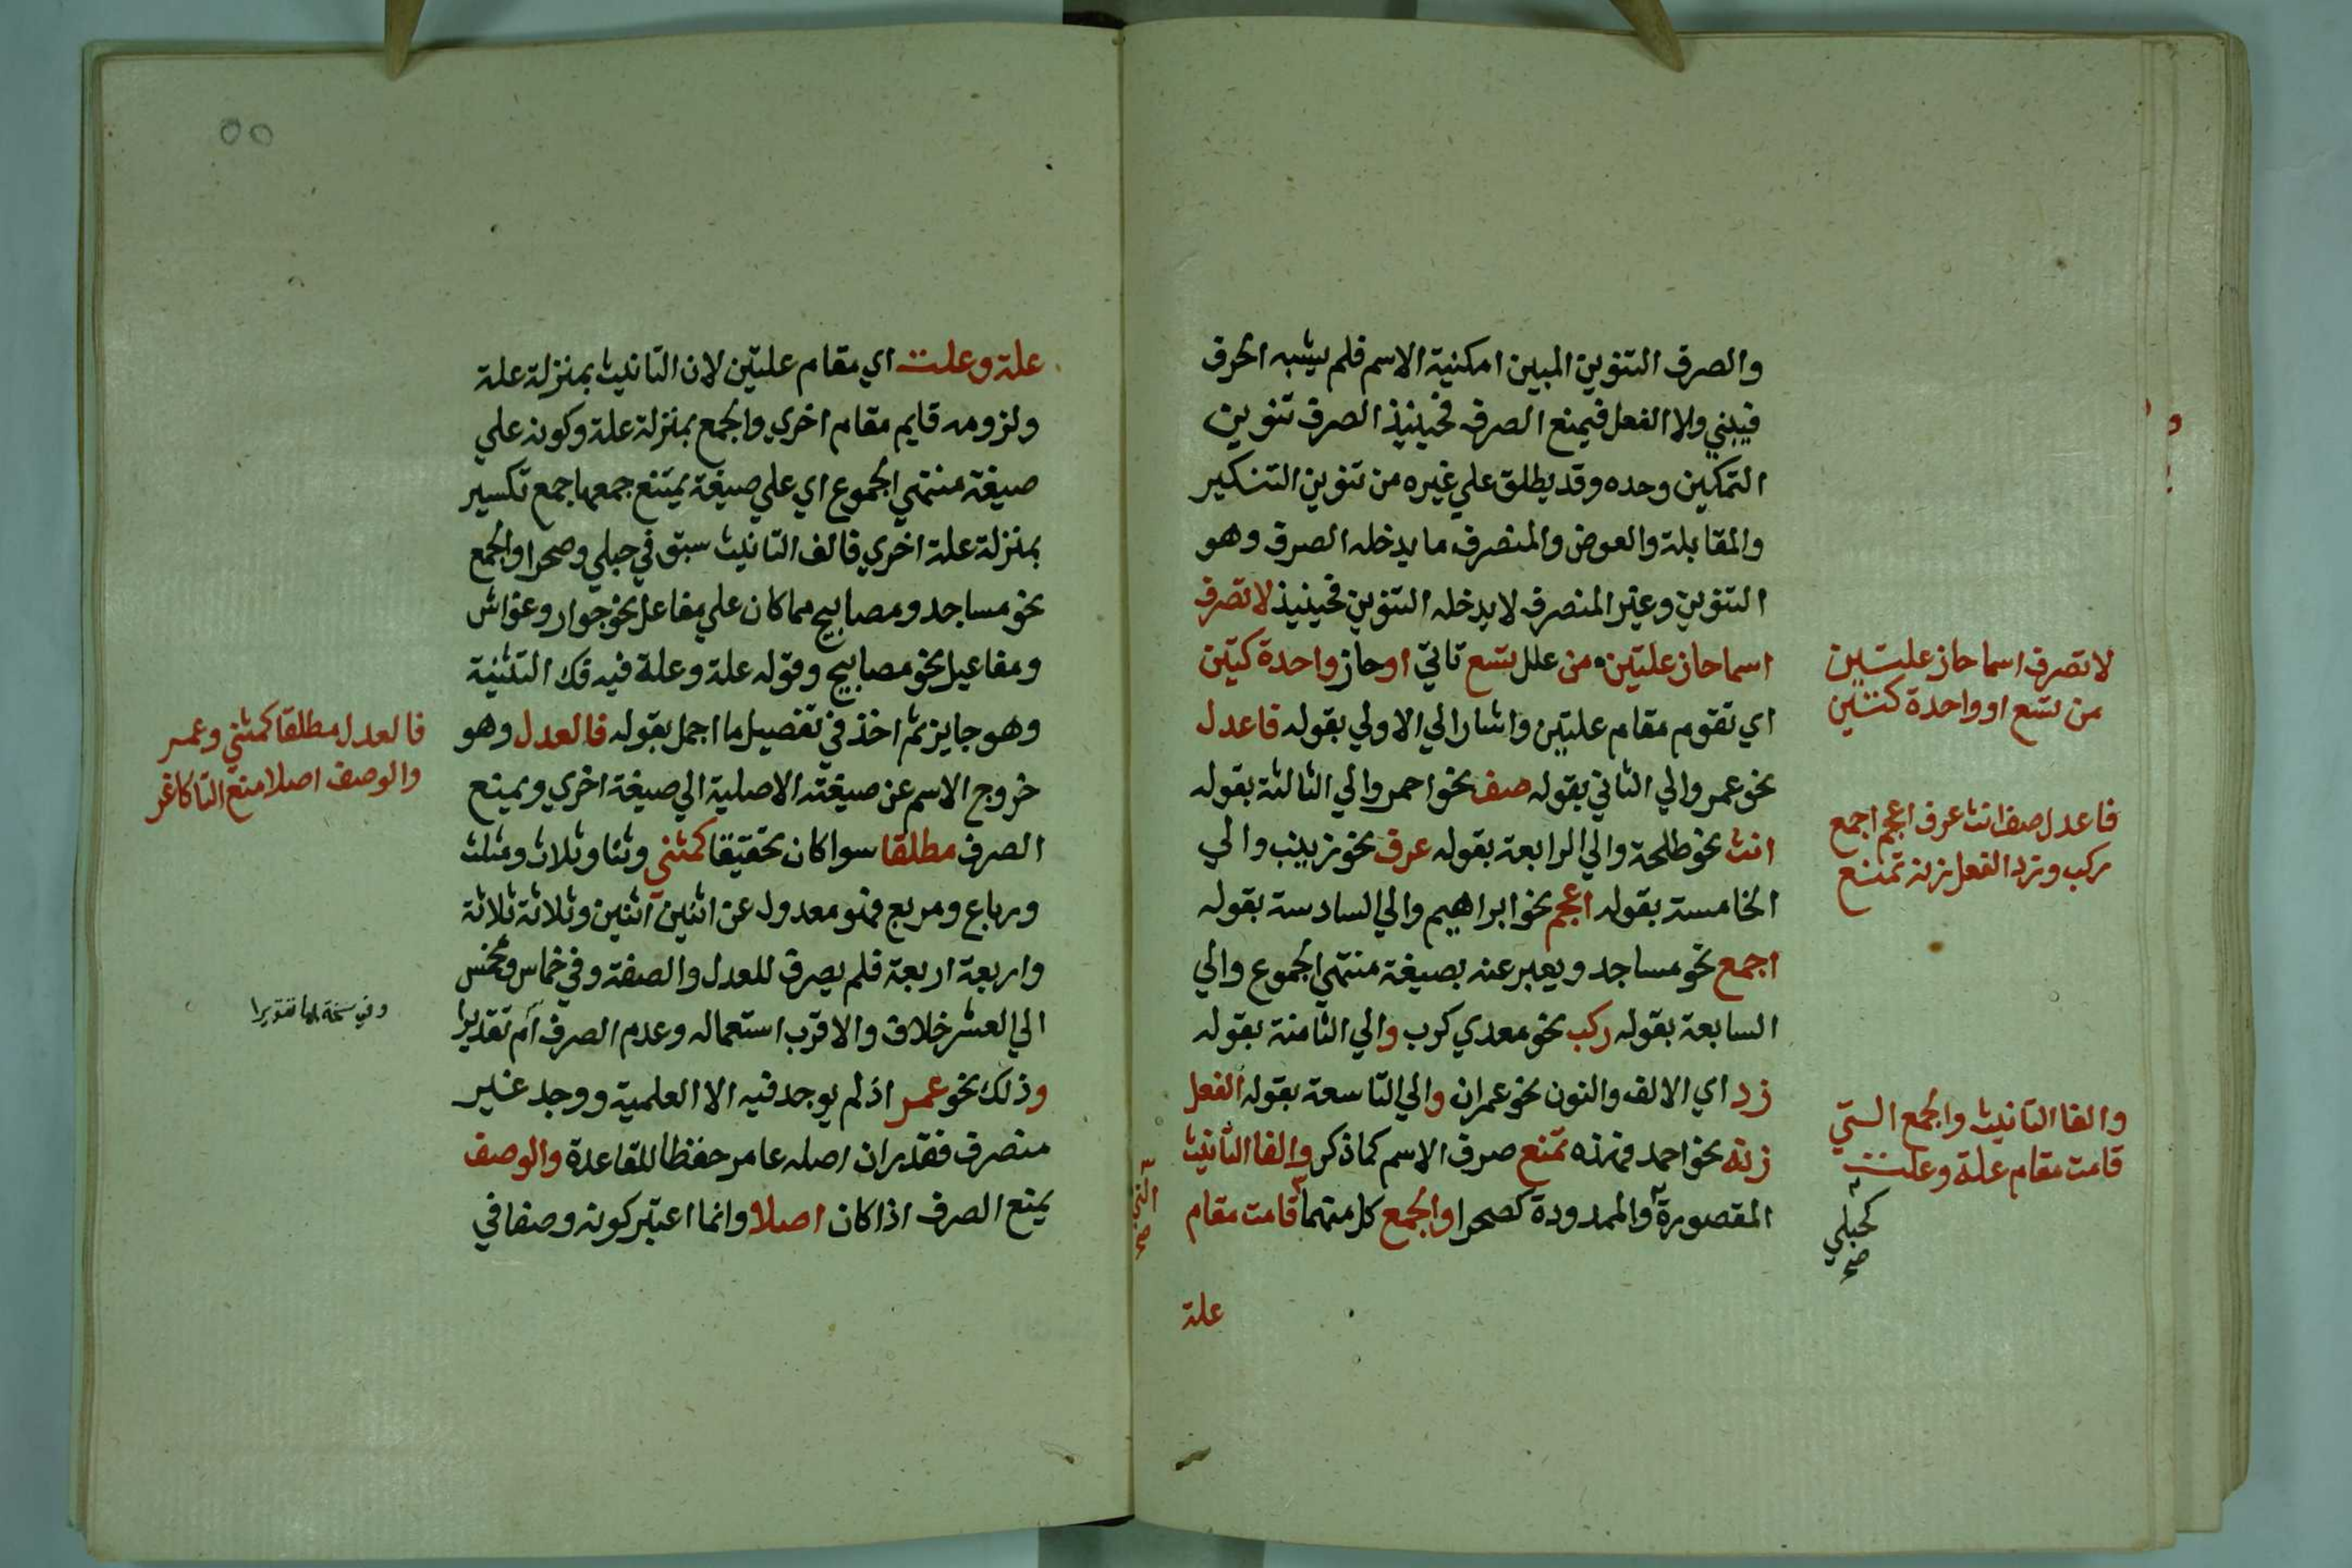 والصرف التنوين المبين امكنية الاسم فلم يشبه الحرف
فيبني ولا الفعل فيمنع الصرف فحينيذ الصرف تنوين
التمكين وحده وقد يطلق علي غيره من تنوين التنكير
والمقابلة والعوض والمنصرف ما يدخله الصرف وهو
التنوين وغير المنصرف لا يدخله التنوين فحينيذ لا تصرف
اسما حاز علتين من علل بتسع تاتي او حاز واحدة كتين
اي تقوم مقام علتين واشار الي الاولي بقوله فاعدل
نحو عمر والي الثاني بقوله صف نحو احمر والي الثالثة بقوله
انث نحو طلحة والي الرابعة بقوله عرف نحو زينب والي
الخامسة بقوله اعجم نحو ابراهيم والي السادسة بقوله
اجمع نحو مساجد ويعبر عنه بصيغة منتهي الجموع والي
السابعة بقوله ركب نحو معدي كرب والي الثامنة بقوله
زد اي الالف والنون نحو عمران والي التاسعة بقوله الفعل
زنة نحو احمد فهذه تمنع صرف الاسم كما ذكر والفا التانيث
المقصورة والممدودة كصحرا والجمع كل منهما قامت مقام
علة
لا تصرف اسما حاز علتين
من تسع او واحدة كثنتين
فاعدل صف انث عرف اعجم اجمع
ركب وزد الفعل زنة تمنع
والفا التانيث والجمع التي
قامت مقام علة وعلت
كحبلي
صح
التي
صح
علة وعلت اي مقام علتين لان التانيث بمنزلة علة
ولزومه قايم مقام اخري والجمع بمنزلة علة وكونه علي
صيغة منتهي الجموع اي علي صيغة يمتنع جمعها جمع تكسير
بمنزلة علة اخري فالف التانيث سبق في حبلي وصحرا والجمع
نحو مساجد ومصابيح مما كان علي مفاعل نحو جوار وغواش
ومفاعيل نحو مصابيح وقوله علة وعلة فيه فك التثنية
وهو جايز ثم اخذ في تفصيل ما اجمل بقوله فالعدل وهو
خروج الاسم عن صيغته الاصلية الي صيغة اخري ويمنع
الصرف مطلقا سوا كان تحقيقا كمثني وثنا وثلاث ومثلث
ورباع ومربع فهو معدول عن اثنين اثنين وثلاثة ثلاثة
واربعة اربعة فلم يصرف للعدل والصفة وفي خماس ومخمس
الي العشر خلاف والاقرب استعماله وعدم الصرف ام تقديرا
وذلك نحو عمر اذ لم يوجد فيه الا العلمية ووجد غير
منصرف فقدر ان اصله عامر حفظا للقاعدة والوصف
يمنع الصرف اذا كان اصلا وانما اعتبر كونه وصفا في
فالعدل مطلقا كمثني وعمر
والوصف اصلا منع التا كاغر
وفي نسخة تقديرا